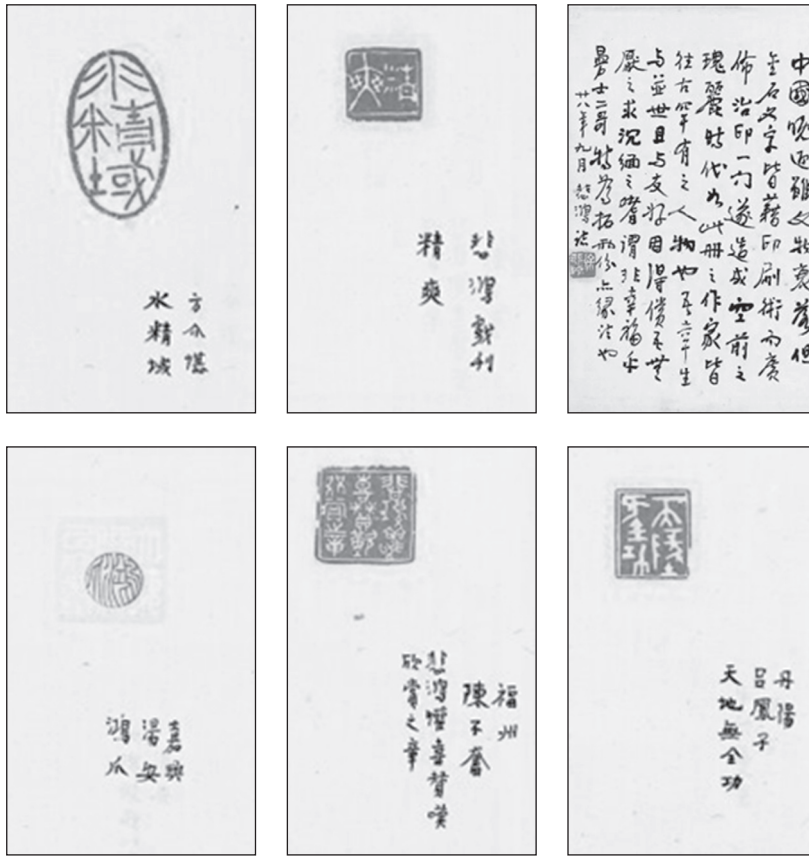 水精域
方介堪
水精域
精爽
悲鴻戲刊
精爽
中國晚近雖文物衰落但
金石文字皆藉印刷術而廣
佈治印一門遂造成空前之
瑰麗時代如此冊之作家皆
往古罕有之人物也吾幸生
与並世且与友好因得償吾無
厭之求沉緬之嗜謂非幸福乎
曼士二哥特為拓兩份亦緣法也
廿八年九月悲鴻誌
嘉興
湯安
鴻爪
福州
陳子奮
悲鴻懽喜贊嘆
欣賞之章
丹陽
呂鳳子
天地無全功